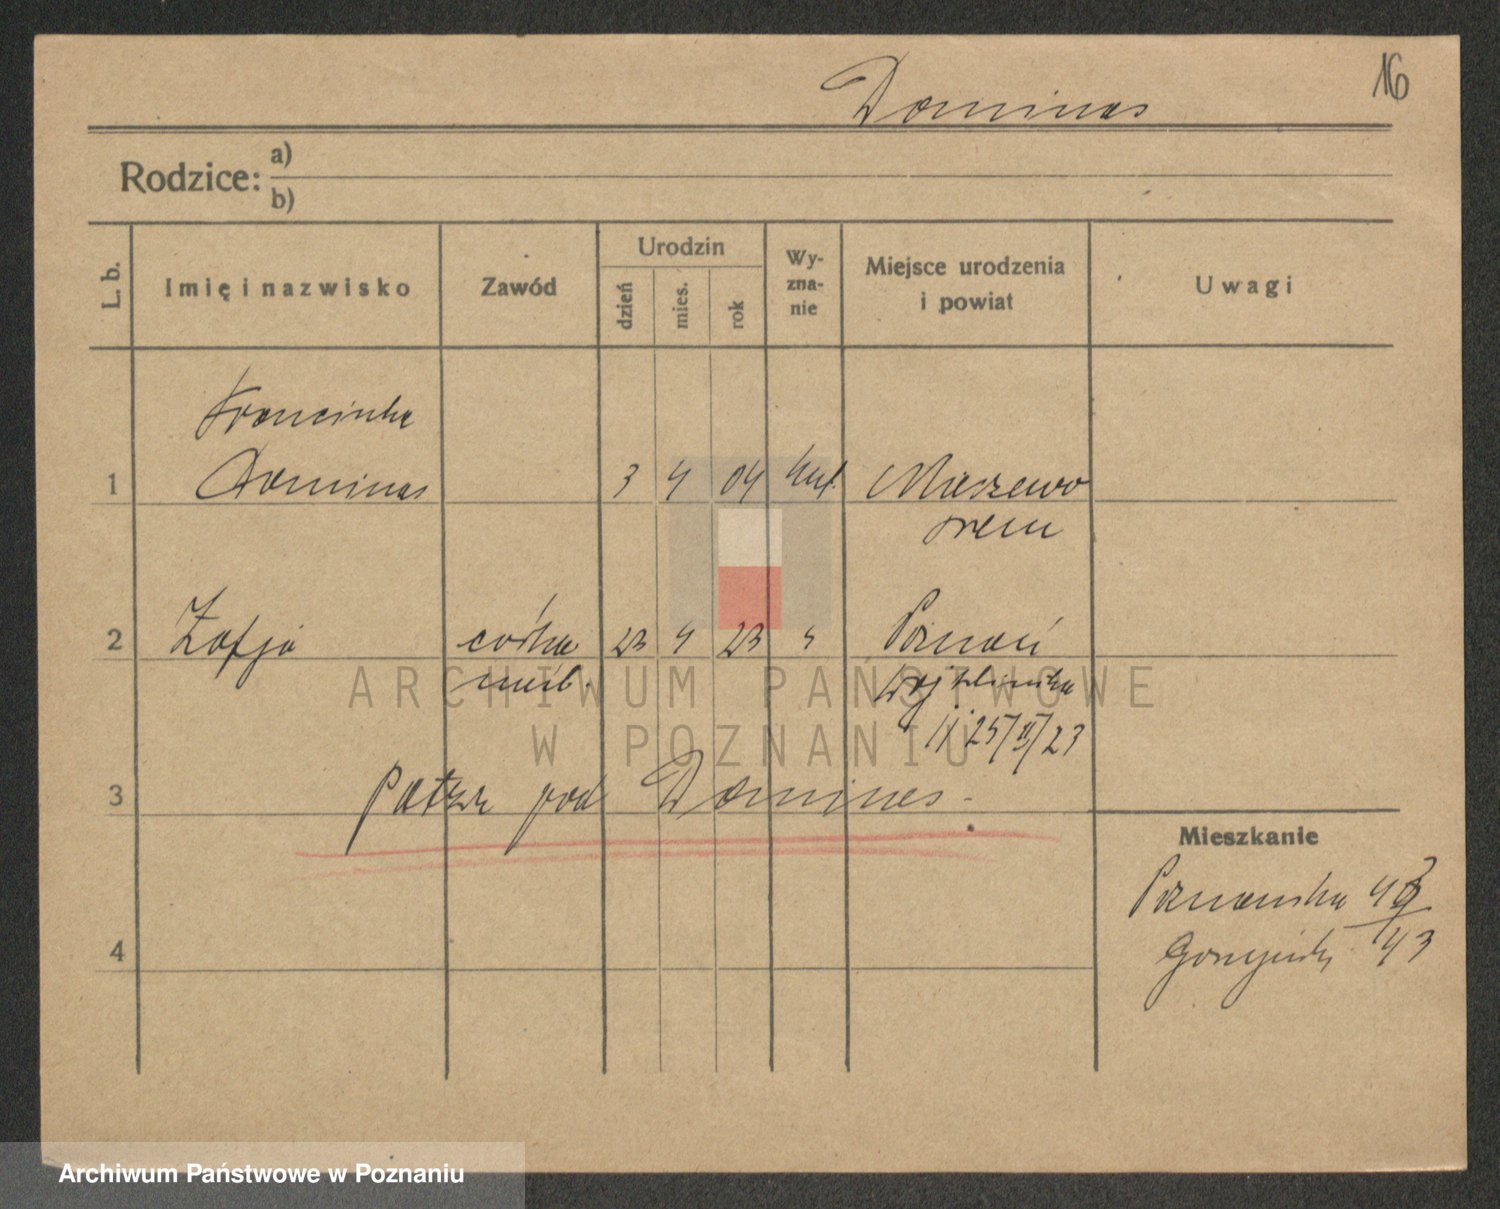 Dominas
16
Rodzice:
a)
b)
L. b.
Imię i nazwisko
Zawód
Urodzin
dzień
mies.
rok
Wy-
zna-
nie
Miejsce urodzenia
i powiat
Uwagi
Franciszka
1 Dominas 3 4 04 kat. Maszewo
2 Zofja córka 23 4 23 " Poznań
nieśl.
25/II/23
3 patrz pod Dominas -
Mieszkanie
Poznańska
4
43
ARCHIWUM PAŃSTWOWE
W POZNANIU
Archiwum Państwowe w Poznaniu